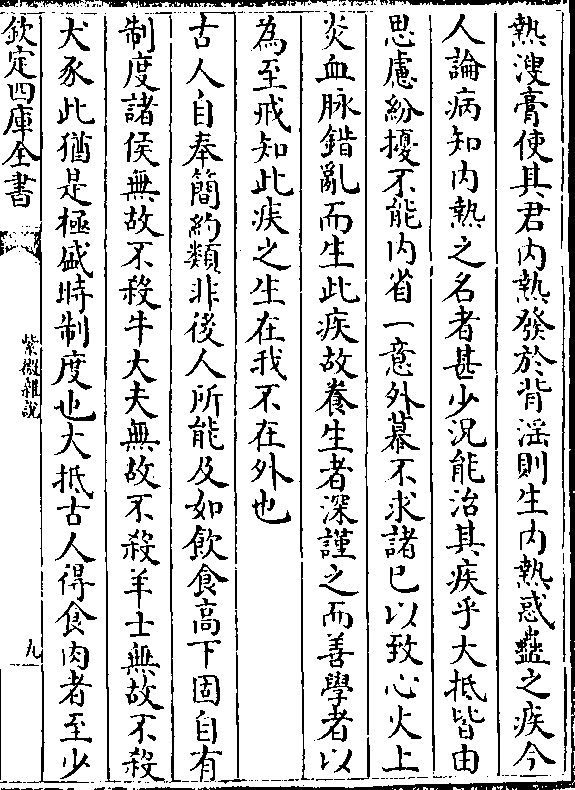 熱溲膏使其君内熱發於背淫則生内熱惑蠱之疾今
人論病知内熱之名者甚少况能治其疾乎大抵皆由
思慮紛擾不能内省一意外慕不求諸已以致心火上
炎血脉錯亂而生此疾故養生者深謹之而善學者以
為至戒知此疾之生在我不在外也
古人自奉簡約類非後人所能及如飲食高下固自有
制度諸侯無故不殺牛大夫無故不殺羊士無故不殺
犬豕此猶是極盛時制度也大抵古人得食肉者至少
欽定四庫全書
紫微雜說
九